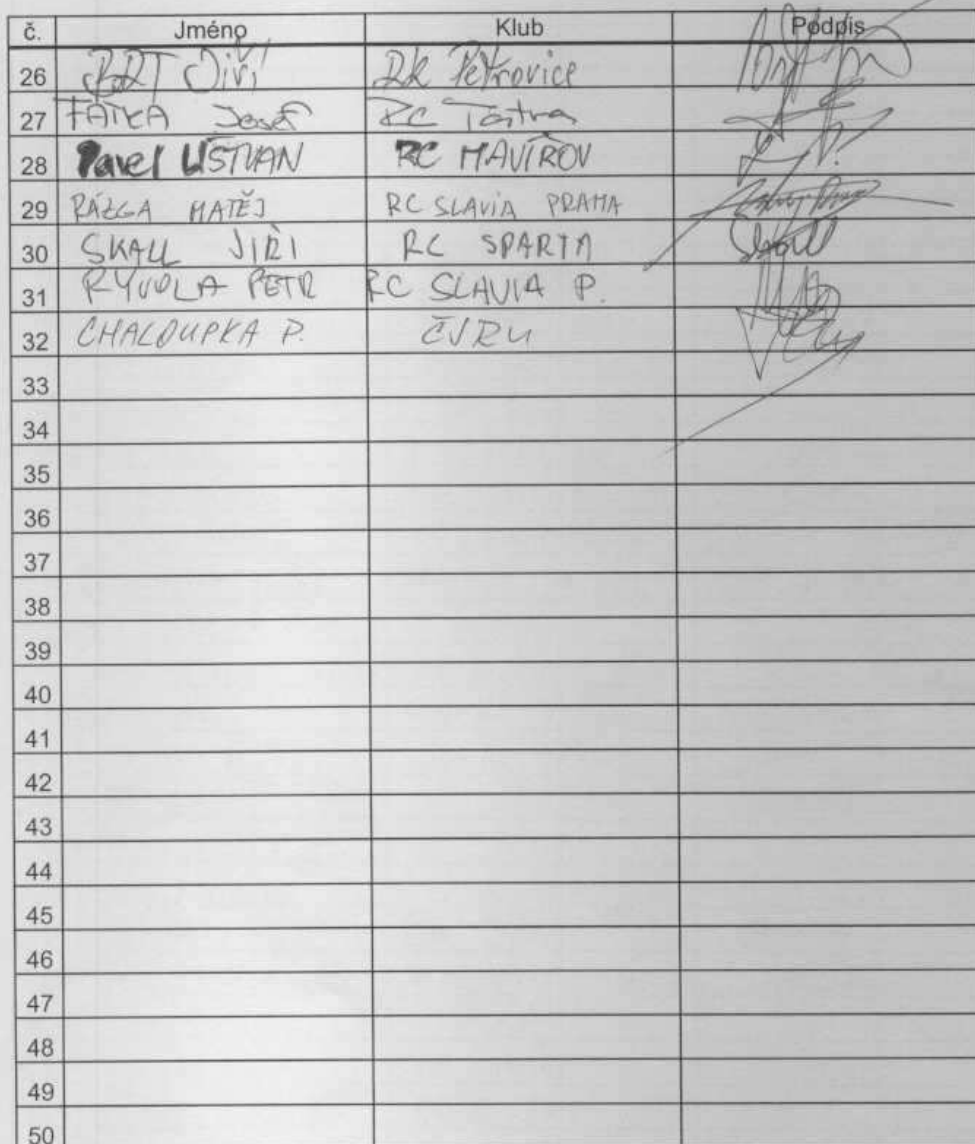 č. Jméno Klub Podpis
26 BRT Jiří RK Petrovice
27 FATKA Josef RC Tatra
28 Pavel USTVAN RC HAVÍROV
29 RÁZGA MATĚJ RC SLAVIA PRAHA
30 SKALL JIŘÍ RC SPARTA Skall
31 RYVOLA PETR RC SLAVIA P.
32 CHALOUPKA P. ČSRU
33
34
35
36
37
38
39
40
41
42
43
44
45
46
47
48
49
50